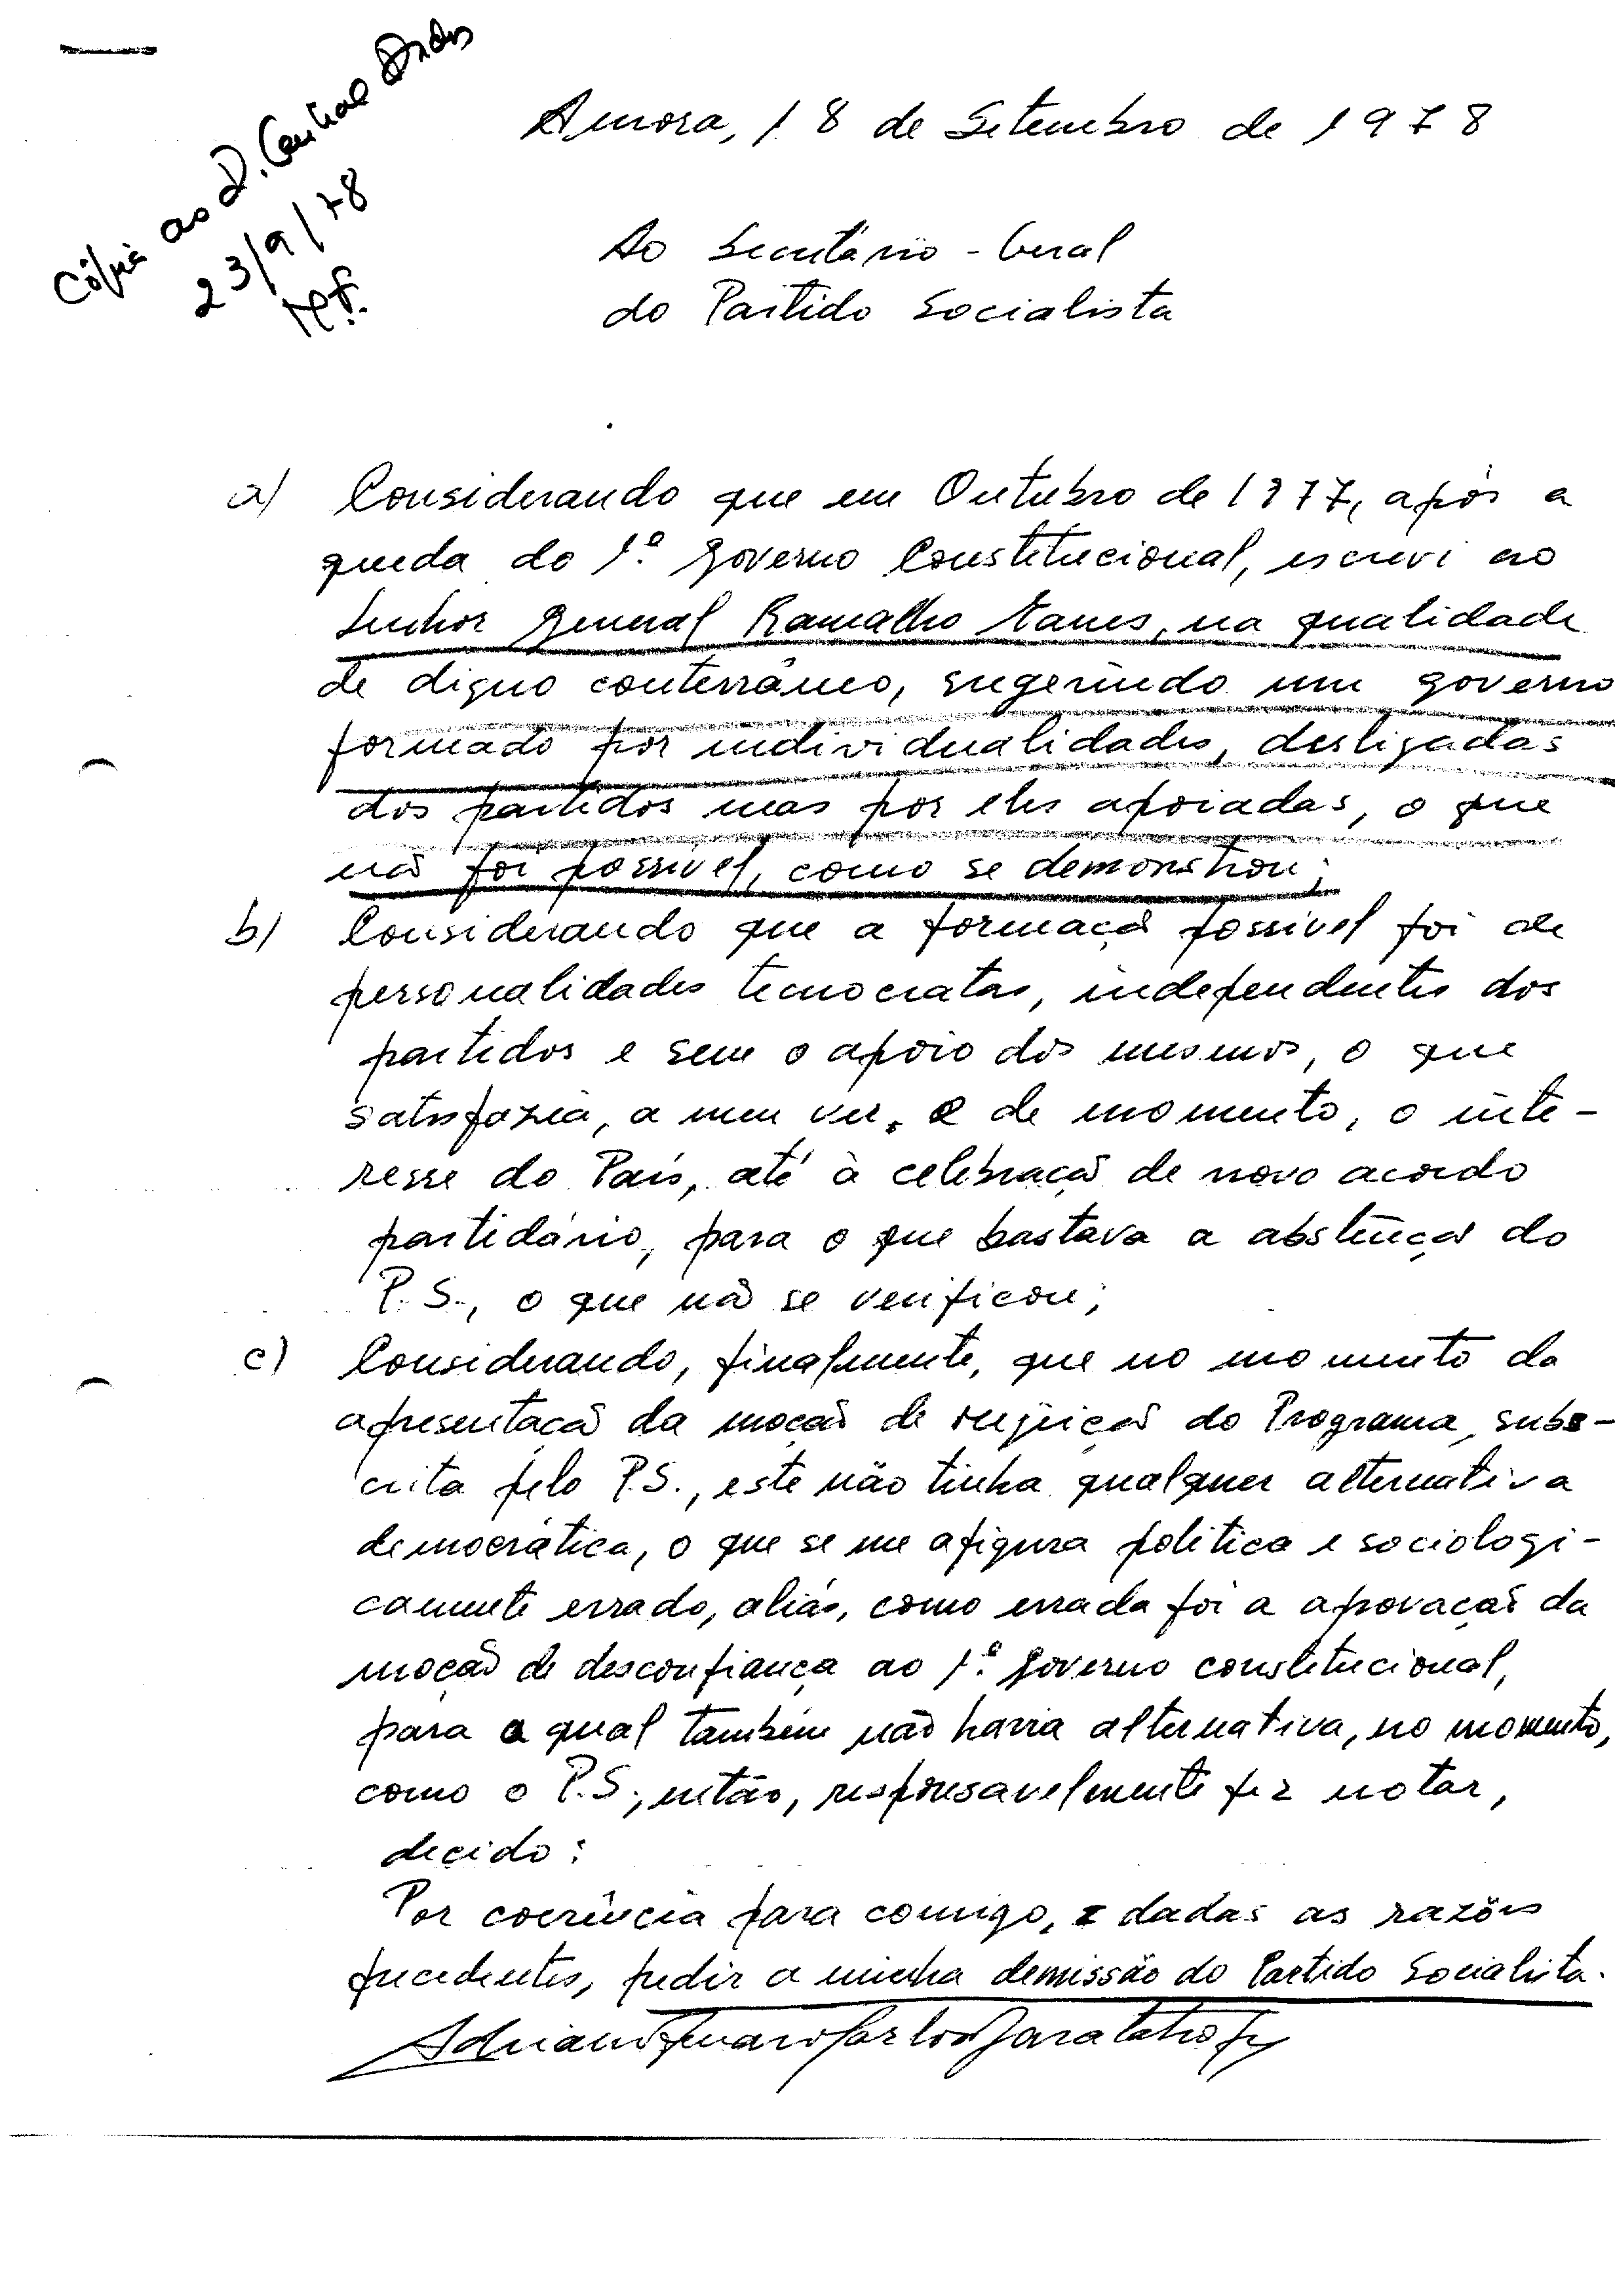 Cópia ao D. Cunha
23/9/78
Amora, 18 de Setembro de 1978
Ao Secretário-Geral
do Partido Socialista
a) Considerando que em Outubro de 1977, após a
queda do 1.º Governo Constitucional, escrevi ao
Senhor General Ramalho Eanes, na qualidade
de digno conterrâneo, sugerindo um governo
formado por individualidades, desligadas
dos partidos mas por eles apoiadas, o que
não foi possível, como se demonstrou;
b) Considerando que a formação possível foi de
personalidades tecnocratas, independentes dos
partidos e sem o apoio dos mesmos, o que
satisfazia, a meu ver, e de momento, o inte-
resse do País, até à celebração de novo acordo
partidário, para o que bastava a abstenção do
P.S., o que não se verificou;
c) Considerando, finalmente, que no momento da
apresentação da moção de rejeição do Programa, subs-
crita pelo P.S., este não tinha qualquer alternativa
democrática, o que se me afigura política e sociologi-
camente errado, aliás, como errada foi a aprovação da
moção de desconfiança ao 1.º Governo constitucional,
para a qual também não havia alternativa, no momento,
como o P.S., então, responsavelmente fez notar,
decido:
Por coerência para comigo, e dadas as razões
precedentes, pedir a minha demissão do Partido Socialista.